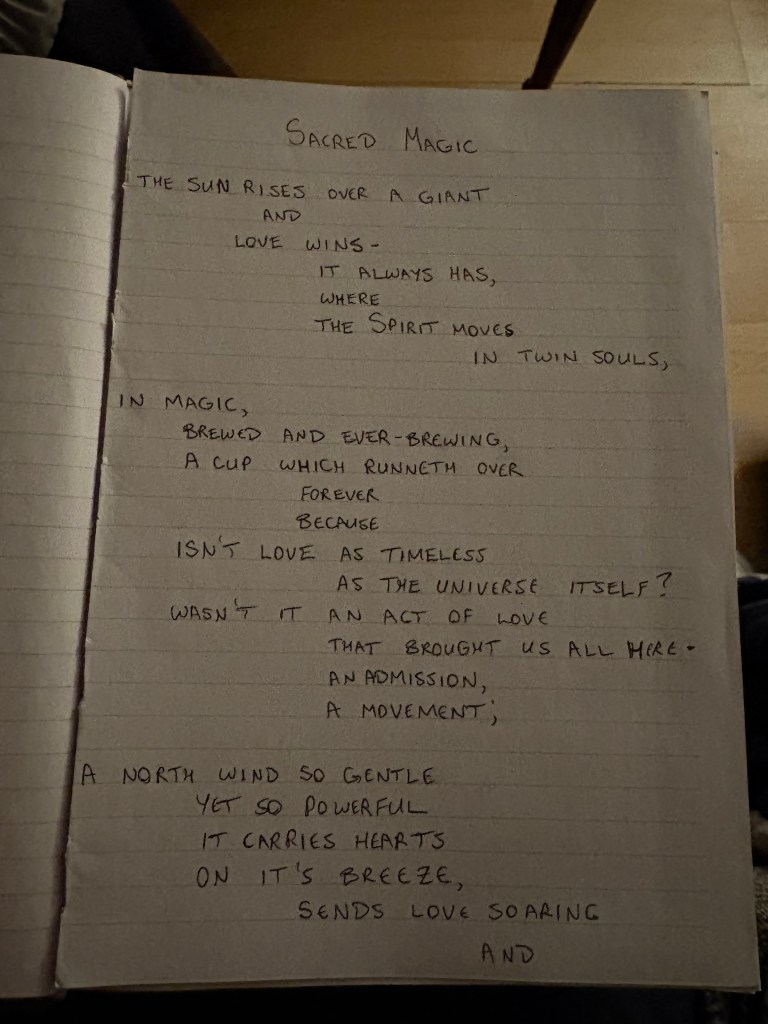 SACRED MAGIC
THE SUN RISES OVER A GIANT
AND
LOVE WINS-
IT ALWAYS HAS,
WHERE
THE SPIRIT MOVES
IN TWIN SOULS,
IN MAGIC,
BREWED AND EVER-BREWING,
A CUP WHICH RUNNETH OVER
FOREVER
BECAUSE
ISN'T LOVE AS TIMELESS
AS THE UNIVERSE ITSELF?
WASN'T IT AN ACT OF LOVE
THAT BROUGHT US ALL HERE-
AN ADMISSION,
A MOVEMENT;
A NORTH WIND SO GENTLE
YET SO POWERFUL
IT CARRIES HEARTS
ON IT'S BREEZE,
SENDS LOVE SOARING
AND